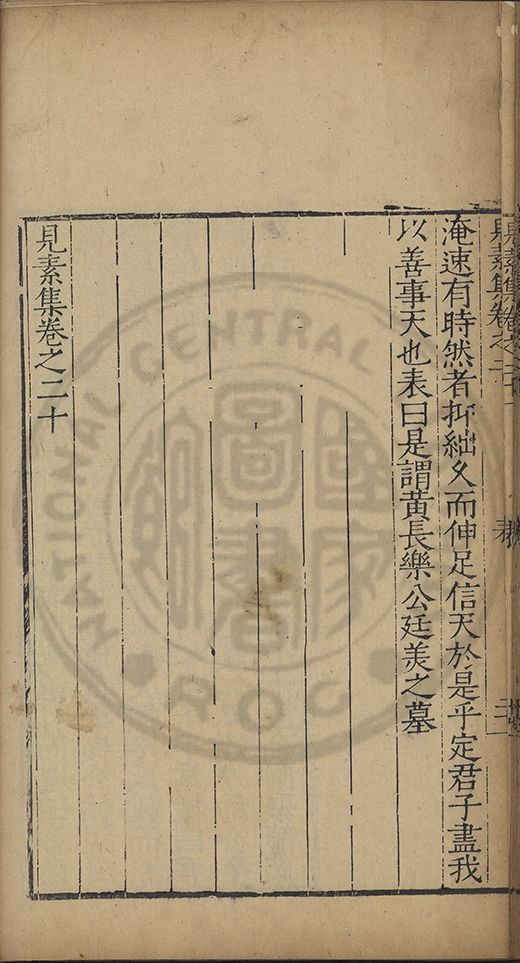 淹速有時然者抑絀久而伸足信天於是乎定君子盡我
以善事天也表曰是謂黄長樂公廷美之墓
見素集卷之二十